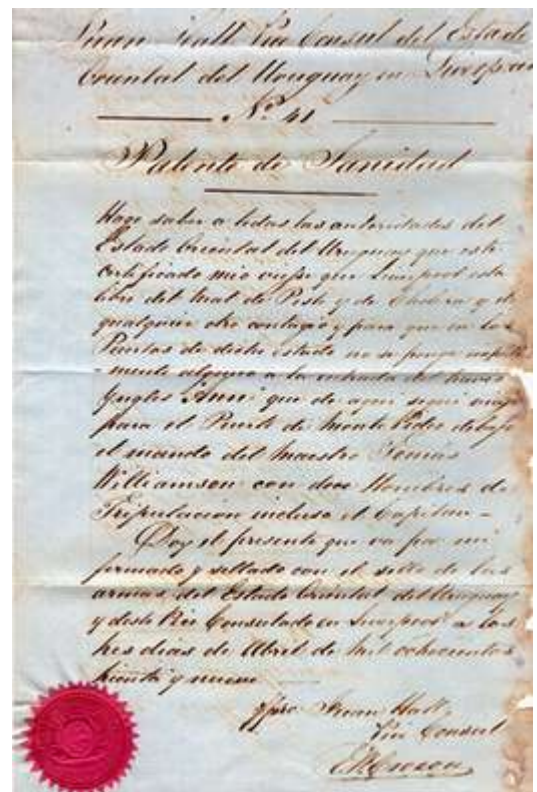 Juan Hall Vice Consul del Estado
Oriental del Uruguay en Liverpool
No. 41
Patente de Sanidad
Hago saber a todas las autoridades del
Estado Oriental del Uruguay que este
certificado mio que Liverpool esta
libre del mal de Peste y de Cholera y de
qualquier otro contagio y para que en los
Puertos de dicho estado no se ponga impedi
-mento alguno a la entrada del
Ingles "Ann" que de aqui
para el Puerto de Monte Video debajo
el mando del Maestro Tomás
Williamson con doce Hombres de
Tripulacion incluso el Capitan -
Doy el presente que va por mi
firmado y sellado con el sello de las
armas del Estado Oriental del Uruguay
y deste Vice Consulado en Liverpool a los
tres dias de Abril de mil ochocientos
y nueve
Juan Hall
Vice Consul